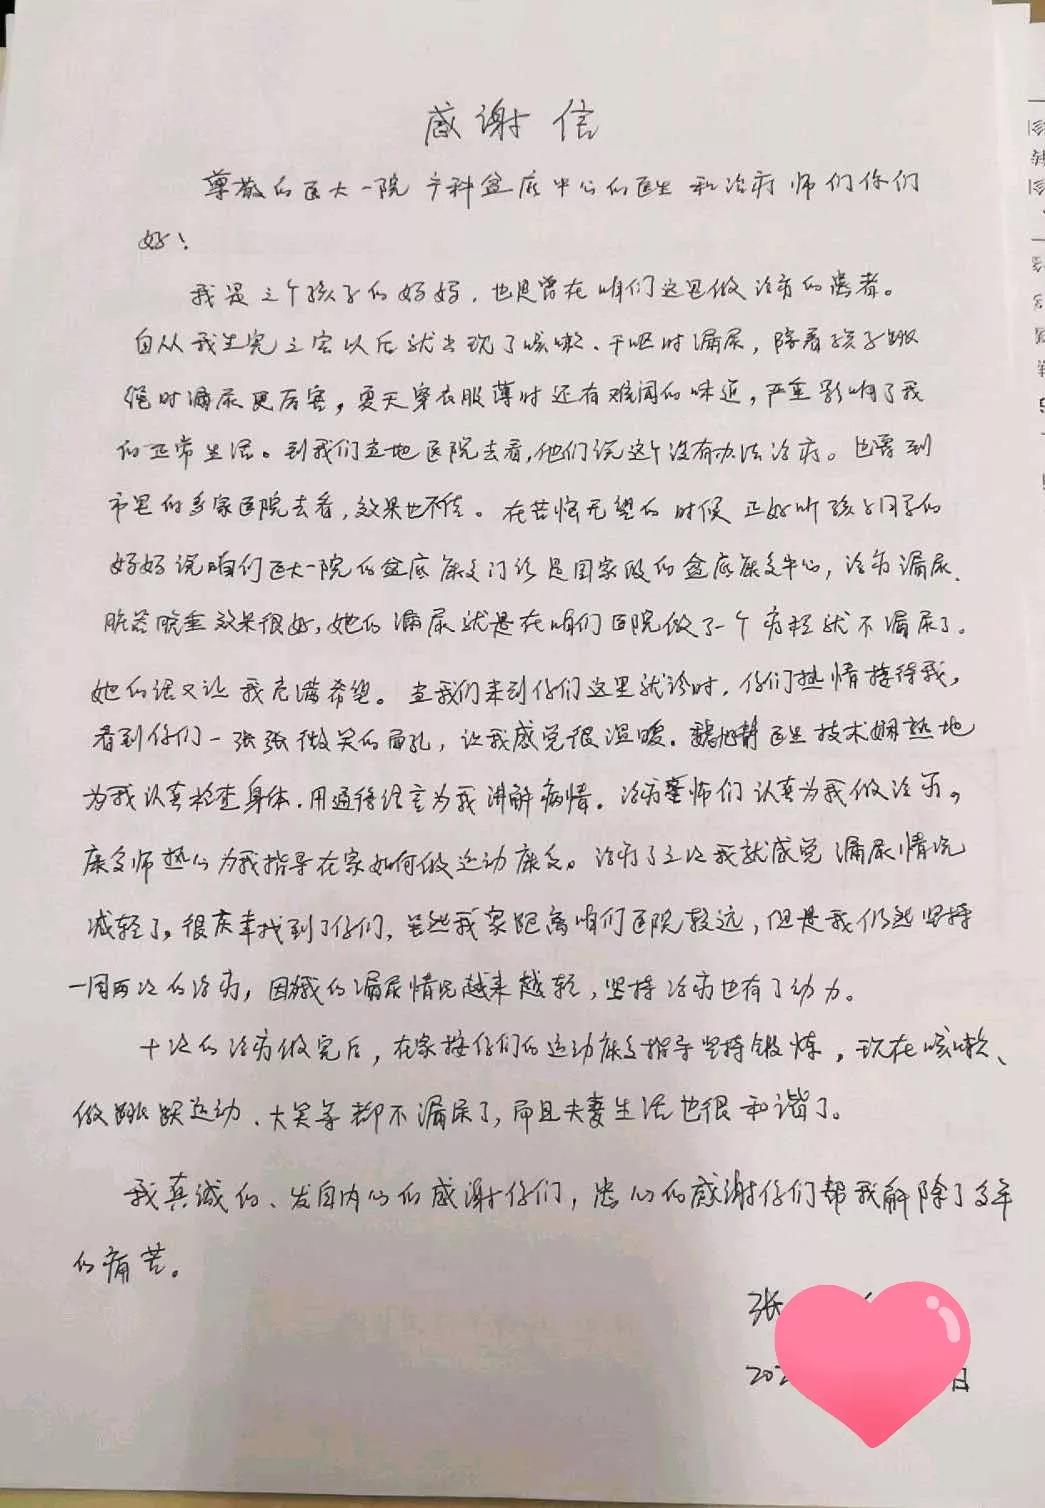 感谢信
尊敬的医大一院产科盆底中心的医生和治疗师们你们
好！
我是三个孩子的妈妈，也是曾在咱们这里做治疗的患者。
自从我生完三宝以后就出现了咳嗽、干呕时漏尿，陪着孩子跳
绳时漏尿更厉害，夏天穿衣服薄时还有难闻的味道，严重影响了我
的正常生活。到我们当地医院去看，他们说这个没有办法治疗。也曾到
市里的多家医院去看，效果也不佳。在苦恼无望的时候正好听孩子同学的
妈妈说咱们医大一院的盆底康复门诊是国家级的盆底康复中心，治疗漏尿、
脏器脱垂效果很好，她的漏尿就是在咱们医院做了一个疗程就不漏尿了。
她的话又让我充满希望。当我们来到你们这里就诊时，你们热情接待我，
看到你们一张张微笑的面孔，让我感觉很温暖。魏旭静医生技术娴熟地
为我认真检查身体，用通俗语言为我讲解病情。治疗师们认真为我做治疗。
康复师热心为我指导在家如何做运动康复。治疗了三次我就感觉漏尿情况
减轻了。很庆幸找到了你们，虽然我家距离咱们医院较远，但是我仍然坚持
一周两次的治疗，因我的漏尿情况越来越轻，坚持治疗也有了动力。
十次的治疗做完后，在家按你们的运动康复指导坚持锻炼，现在咳嗽、
做跳跃运动、大笑等都不漏尿了，而且夫妻生活也很和谐了。
我真诚的、发自内心的感谢你们，忠心的感谢你们帮我解除了多年
的痛苦。
张
202 日